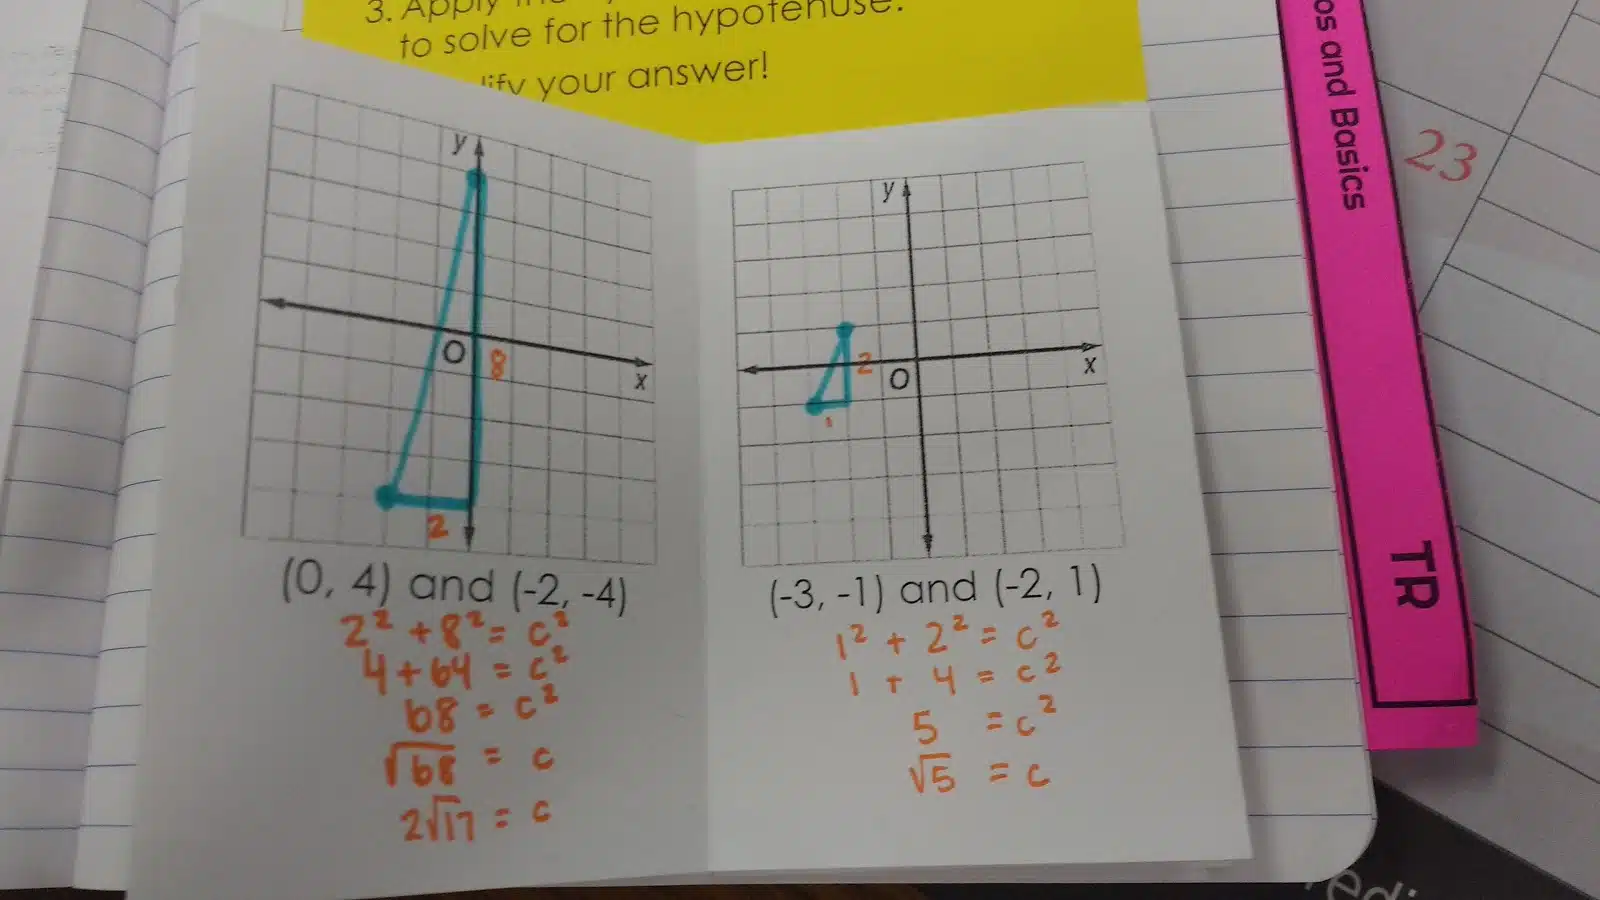 3. Apply the
to solve for the hypotenuse.
your answer!
y
O
8
x
2
(0, 4) and (-2, -4)
2² + 8² = c²
4 + 64 = c²
68 = c²
√68 = c
2√17 = c
y
2
O
x
1
(-3, -1) and (-2, 1)
1² + 2² = c²
1 + 4 = c²
5 = c²
√5 = c
os and Basics
TR
23